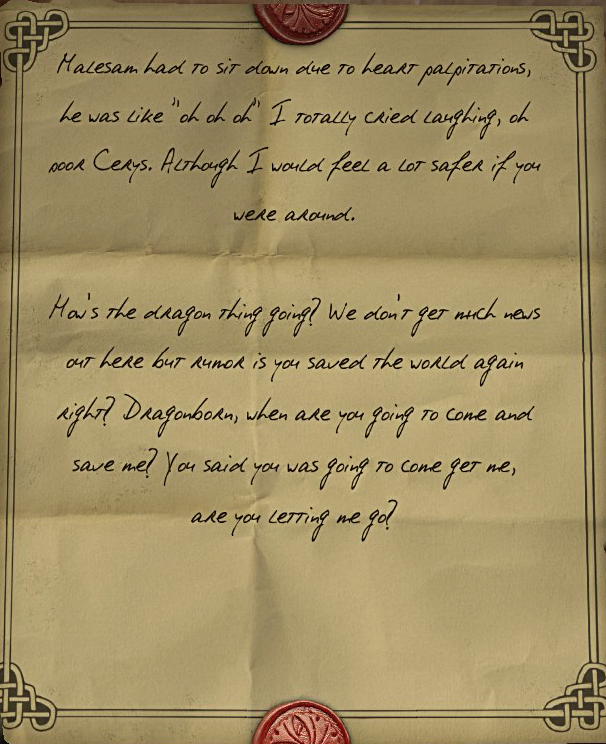 Malesam had to sit down due to heart palpitations,
he was like "oh oh oh" I totally cried laughing, oh
poor Cerys. Although I would feel a lot safer if you
were around.
How's the dragon thing going? We don't get much news
out here but rumor is you saved the world again
right? Dragonborn, when are you going to come and
save me? You said you was going to come get me,
are you letting me go?